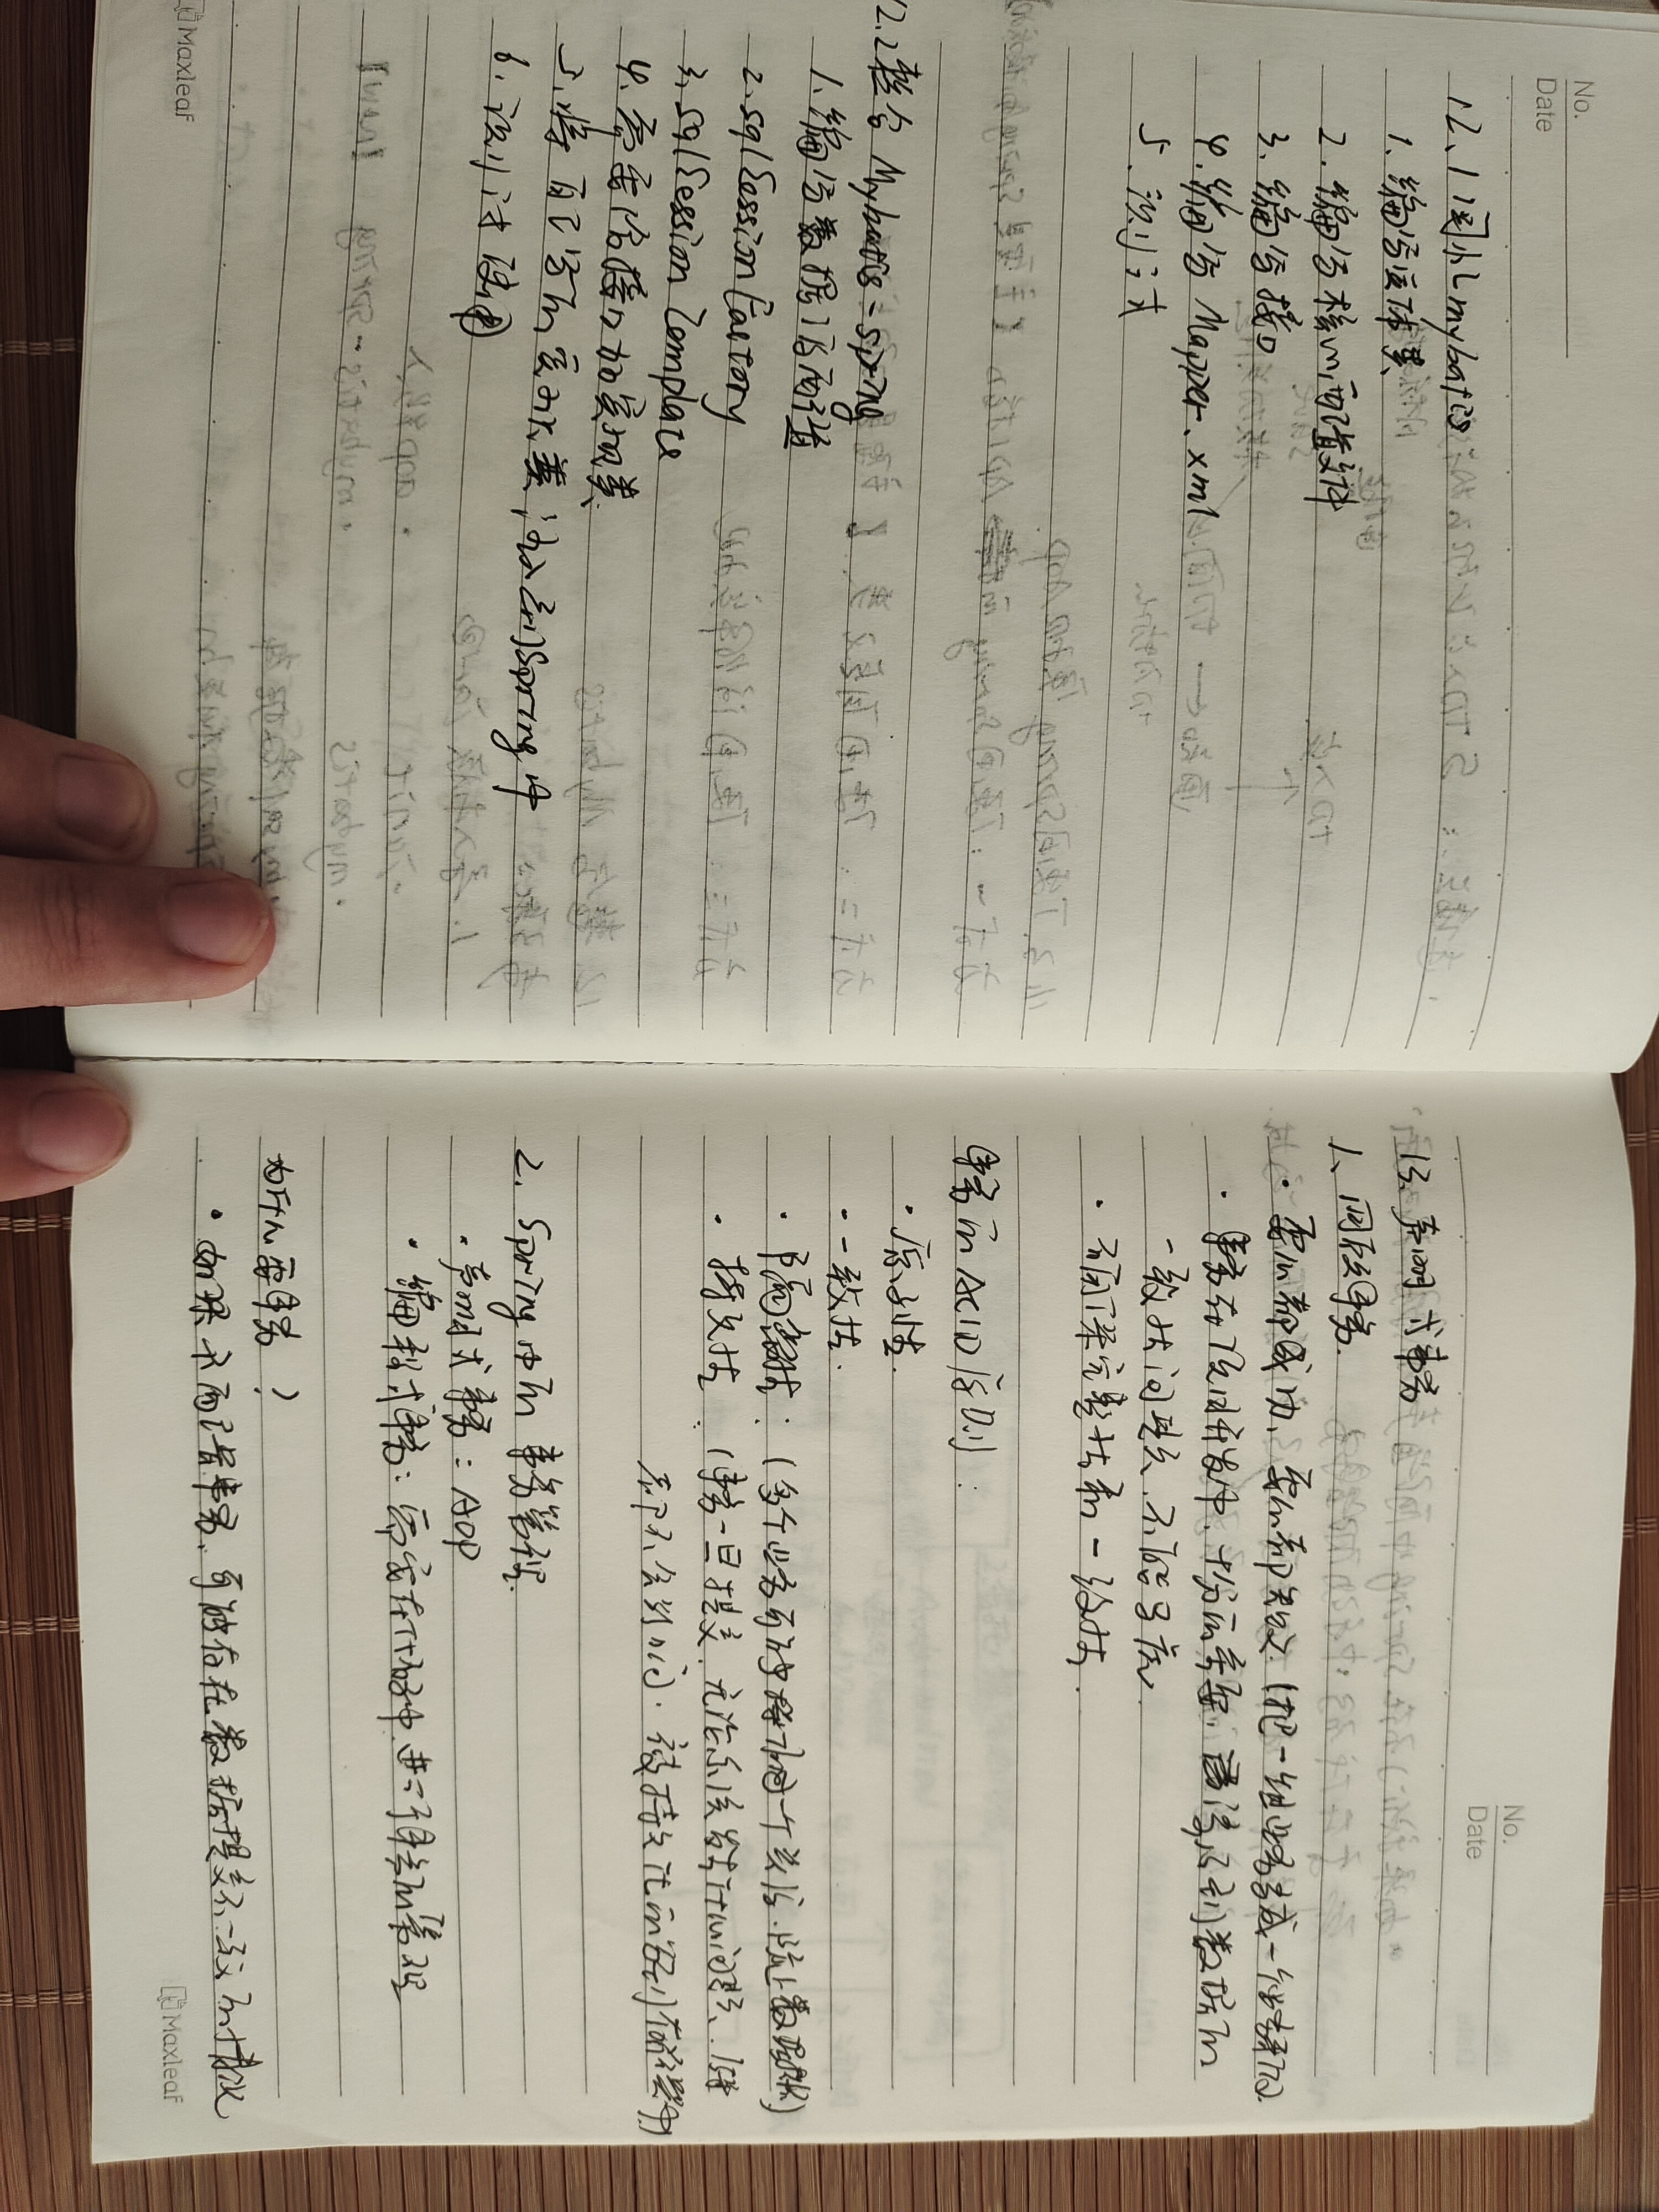 No.
Date
12.1 回忆mybatis
1. 编写实体类
2. 编写核心配置文件
3. 编写接口
4. 编写 Mapper.xml
5. 测试
12.2整合 Mybatis-spring
1. 编写数据源配置
2. sqlSessionFactory
3. sqlSession Template
4. 需要给接口加实现类
5. 将自己写的实现类,注入到Spring中
6. 测试使用
Maxleaf
No.
Date
13. 声明式事务
1、回顾事务.
· 要么都成功、要么都失败 (把一组业务当成一个业务来做)
· 事务在项目开发中,十分的重要,涉及到数据的
一致性问题、不能马虎
· 确保完整性和一致性.
事务的 ACID原则:
· 原子性
· 一致性
· 隔离性: (多个业务可能操作同一个资源,防止数据损坏)
· 持久性: (事务一旦提交,无论系统发生什么问题、结
都不会影响, 被持久化的写到存储器中)
2. Spring中的事务管理.
· 声明式事务: AOP
· 编程式事务: 需要在代码中进行事务的管理
为什么需要事务?
· 如果不配置事务,可能存在数据提交不一致的情况
Maxleaf